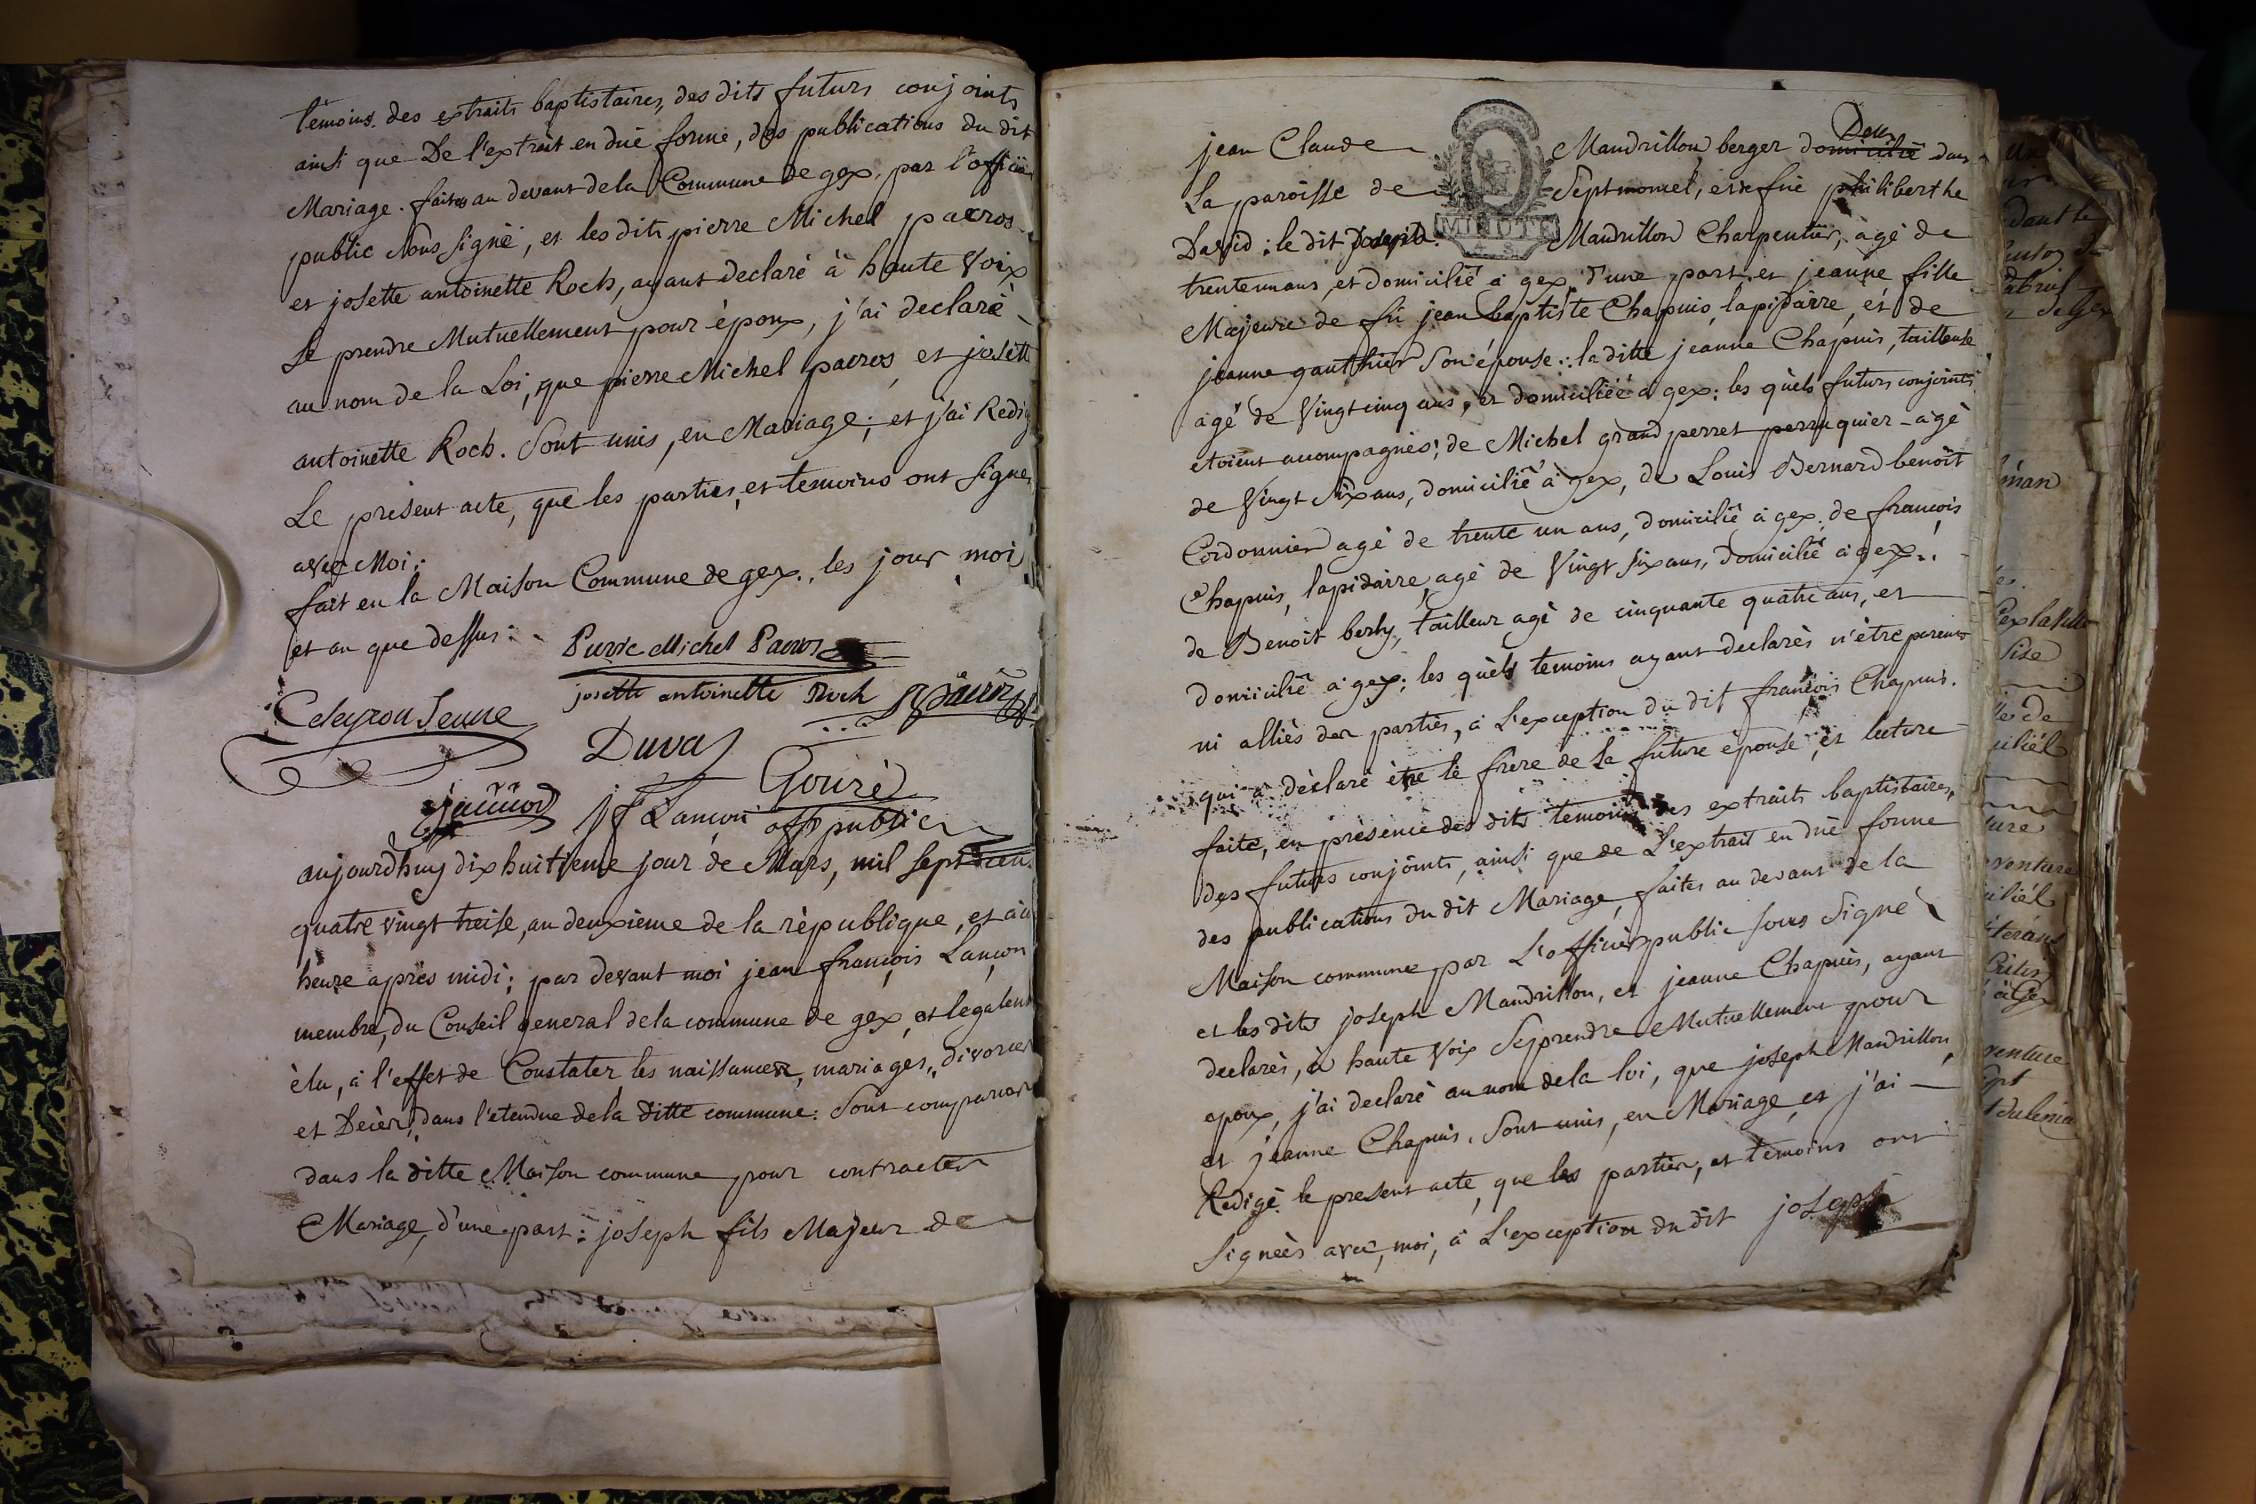 témoins des extraits baptistaires, des dits futurs conjoints
ainsi que De l'extrait en duë forme, des publications du dit
Mariage. faites au devant de la Commune de gex, par l'officier
public sous signé, et les dits pierre Michel pacros
et josette antoinette Roch, ayant declaré à haute Voix
se prendre Mutuellement pour époux, j'ai declaré
au nom de la Loi, que pierre Michel pacros, et josette
antoinette Roch. Sont unis, en Mariage; et j'ai Redig
Le présent acte, que les parties, et temoins ont signés
avec Moi:
fait en la Maison Commune de gex., les jour, mois
et an que dessus:
Pierre Michel Pacros
josette antoinette Roch
Duval
Gouré
jf Lançon off. public
aujourd'huy dix huitieme jour de Mars, mil sept cent
quatre vingt treise, an deuxieme de la rèpublique, et à
heure après midi; par devant moi jean françois Lançon
membre, du Conseil general de la commune de gex, et legalem
èlu, à l'effet de Constater les naissances, mariages, divorces
et Decès, dans l'etendue de la ditte commune. Sont comparus
dans la ditte Maison commune pour contracter
Mariage, d'une part: joseph fils Majeur de
jean Claude Mandrillon, berger domicilié dans
La paroisse de Septmoncel, et de fuë philiberthe
David: le dit joseph Mandrillon Charpentier, agé de
MINUTE
trente un ans, et domicilié à gex, d'une part. et jeanne fille
Majeure de fû jean baptiste Chapuis, lapidairre, et de
jeanne gauthier son épouse: la ditte jeanne Chapuis, tailleuse
agé de Vingt cinq ans, et domiciliéé à gex: les quèls futurs conjoints
etoient accompagnés; de Michel grand perret perruquier agé
de Vingt Six ans, domicilié à gex, de Louis Bernard benoît
Cordonnier agé de trente un ans, domicilié à gex; de françois
Chapuis, lapidairre, agé de Vingt six ans, domicilié à gex;
de Benoit berly, tailleur agé de cinquante quatre ans, et
domicilié à gex; les quèls temoins ayant declarés n'être parents
ni alliés des parties, à L'exception du dit françois Chapuis.
qui a dèclaré être le frere de la future èpouse, et lecture
faite, en présence des dits temoins des extraits baptistaires,
des futurs conjoints, ainsi que de L'extrait en duë forme
des publications du dit Mariage, faites au devant de la
Maison commune par L'officier public sous Signé
et les dits joseph Mandrillon, et jeanne Chapuis, ayant
declarés, à haute Voix Se prendre Mutuellement pour
epoux, j'ai declaré au nom de la loi, que joseph Mandrillon,
et jeanne Chapuis. Sont unis, en Mariage, et j'ai
Redigé le present acte, que les parties, et témoins ont
Signeés avec, moi, à L'exception du dit joseph